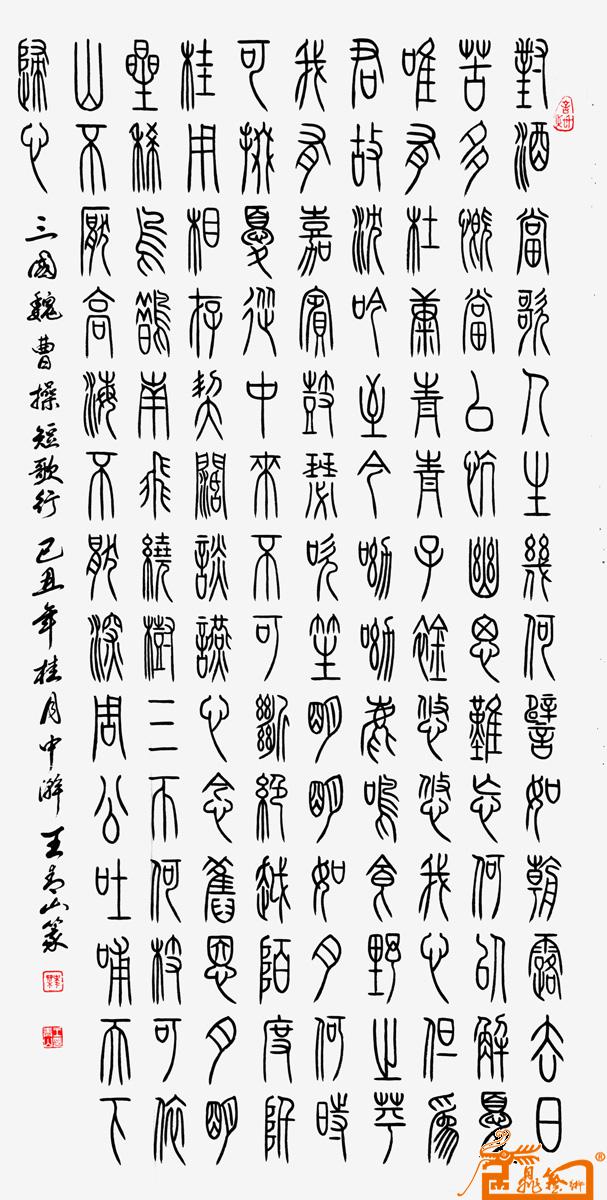 對酒當歌人生幾何譬如朝露去日
苦多慨當以忼幽思難忘何以解憂
唯有杜康青青子衿悠悠我心但為
君故沈吟至今呦呦鹿鳴食野之苹
我有嘉賓鼓瑟吹笙明明如月何時
可掇憂從中來不可斷絕越陌度阡
枉用相存契闊談讌心念舊恩月明
星稀烏鵲南飛繞樹三匝何枝可依
山不厭高海不厭深周公吐哺天下
歸心
三國魏曹操短歌行 己丑年桂月中澣 王青山篆